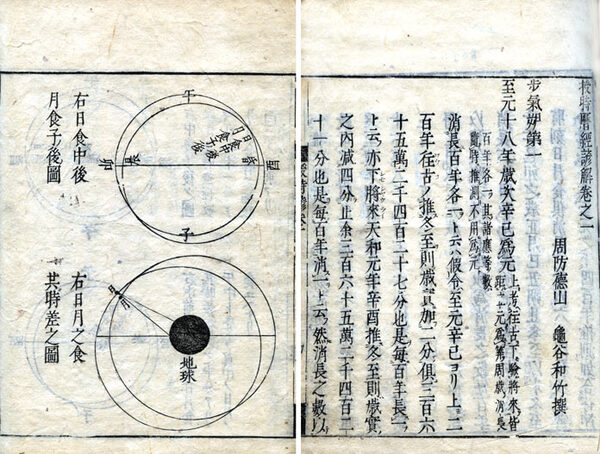 授時曆經諺解卷之一
周防德山 龜谷和竹撰
步氣朔第一
至元十八年歲次辛巳爲元
上考往古下驗將來皆
距立元爲筭周歲消長
百年各一其諸應等數
隨時推測不用爲元
消長百年各一ト云ハ假令至元辛巳ヨリ上ニ
百年往古ノ推冬至則歲實加二分俱三百六
十五萬二千四百二十七分也是每百年長一
ト云亦下將來天和元年辛酉推冬至則歲實
之內減四分止余三百六十五萬二千四百二
十一分也是每百年消一ト云然消長之數以
午
酉
子
卯
日食中後
月食子後
右日食中後
月食子後圖
地球
右日月之食
其時差之圖